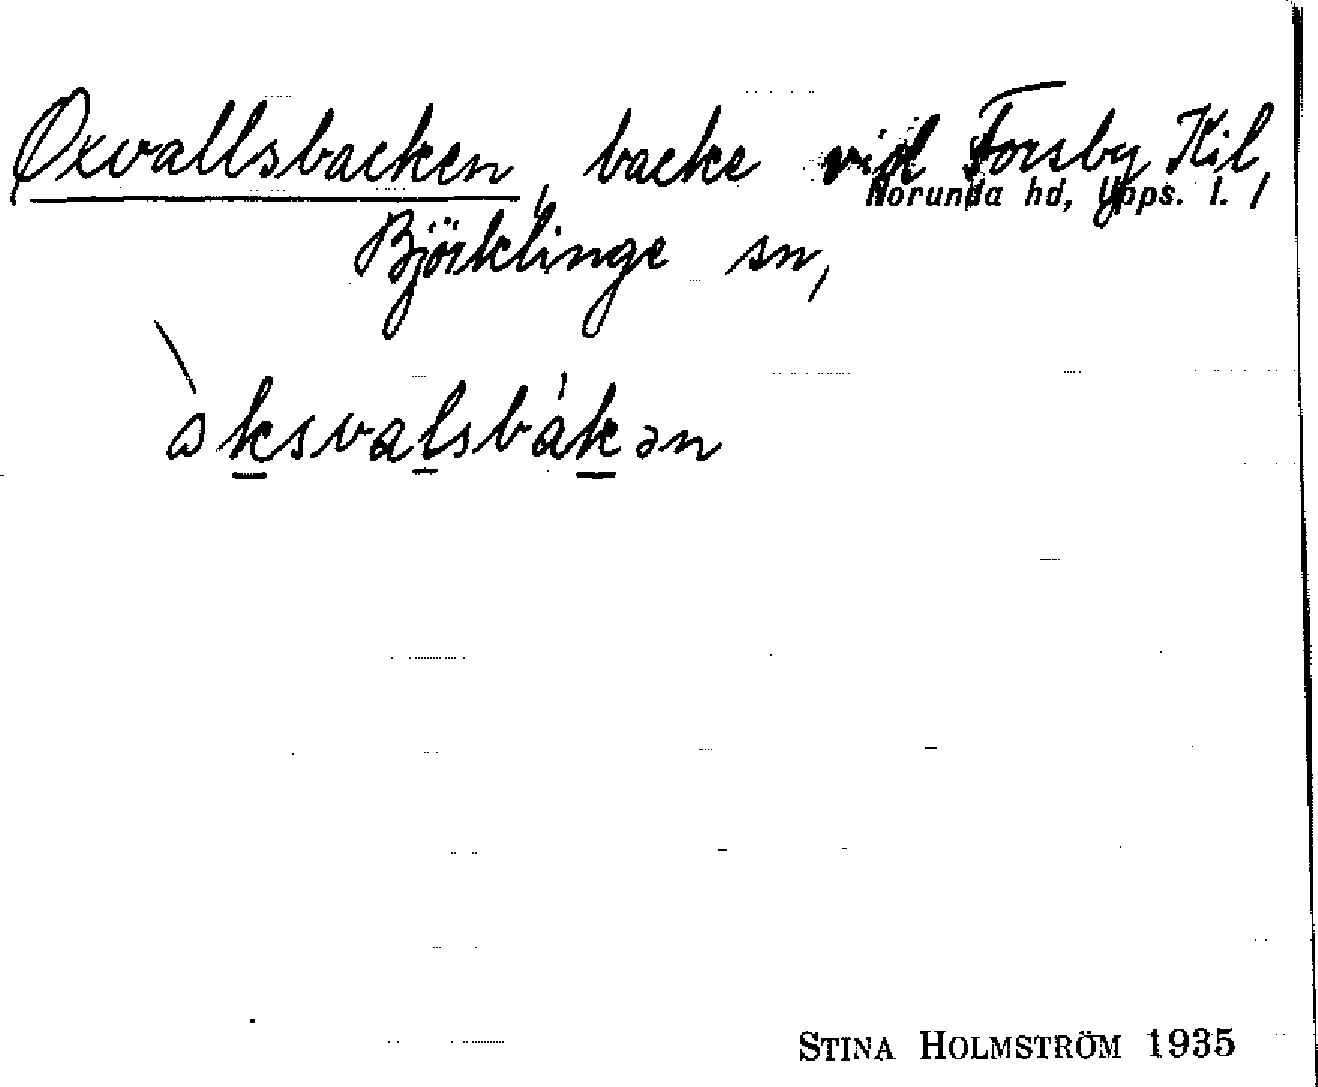 Oxvallsbacken, backe vid Forsby Kil,
Norunda hd, Upps. l.
Björklinge sn,
ò̀ksvalsbákən
STINA HOLMSTRÖM 1935